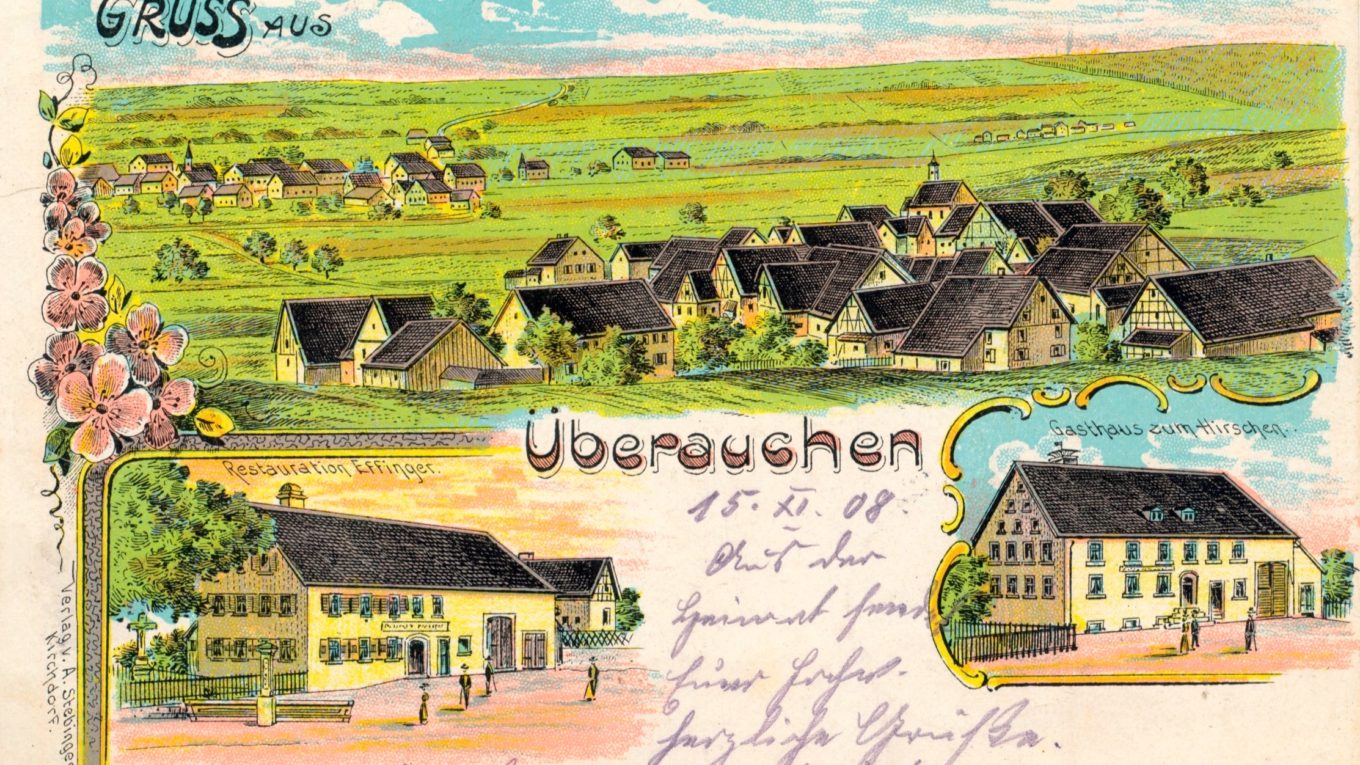 GRUSS AUS
Überauchen
Restauration Effinger.
Gasthaus zum Hirschen.
15. XI. 08.
Aus der
Heimat
herzliche Grüße.
Verlag v. A. Stebinger
Kirchdorf.